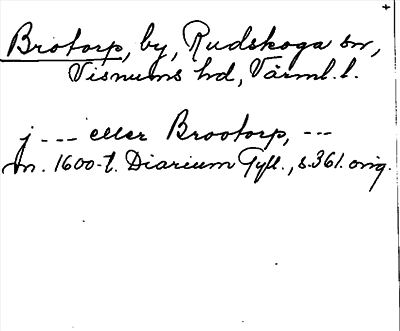 Brotorp, by, Rudskoga sn,
Visnums hd, Värml. l.
j --- eller Brootorp, ---
m. 1600-t. Diarium Gyll., s. 361. orig.